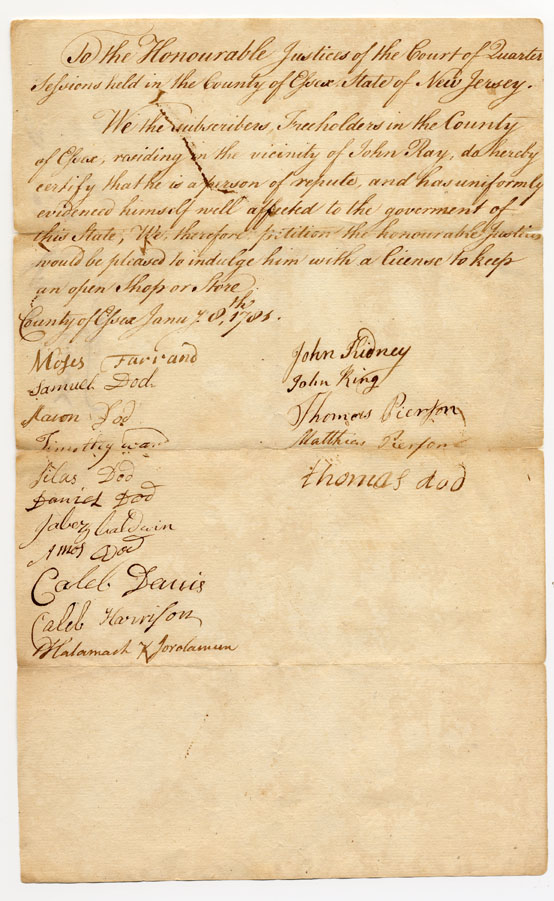 To the Honourable Justices of the Court of Quarter
Sessions held in the County of Essex State of New Jersey.
We the subscribers, Freeholders in the County
of Essex, raciding in the vicinity of John Ray, do hereby
certify that he is a person of repute, and has uniformly
evidenced himself well affected to the goverment of
this State, We, therefore petition the honourable Justices
would be pleased to indulge him with a license to keep
an open Shop or Store
County of Essex Janu 8th, 1785.
Moses Farrand
Samuel Dod
Aaron Dod
Timothy Ward
Silas Dod
Daniel Dod
Jabez Baldwin
Amos Dod
Caleb Davis
Caleb Harrison
John Kidney
John King
Thomas Pierson
Matthias Pierson
thomas dod